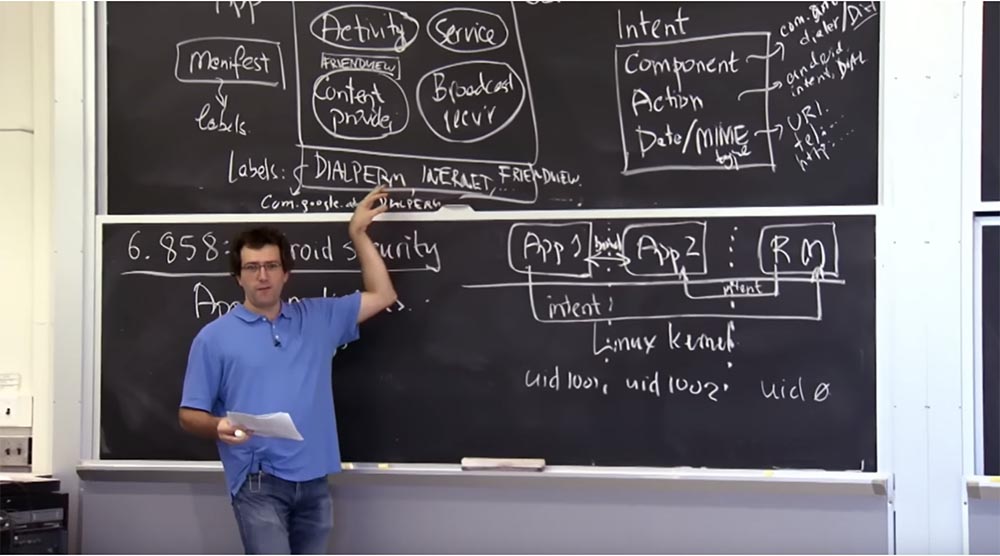 App
Manifest
labels.
Activity
Service
FRIENDVIEW
Content
provider
Broadcast
recvr
Labels:
DIALPERM, INTERNET, FRIENDVIEW.
DIALPERM
Intent
Component
Action
Date/MIME
type
dialer/Dial
android.
intent, DIAL
URI.
tel:...
http:...
6.858: security
App 1
App 2
RM
intent
intent
Linux kernel
uid 1001,
uid 1002
uid 0